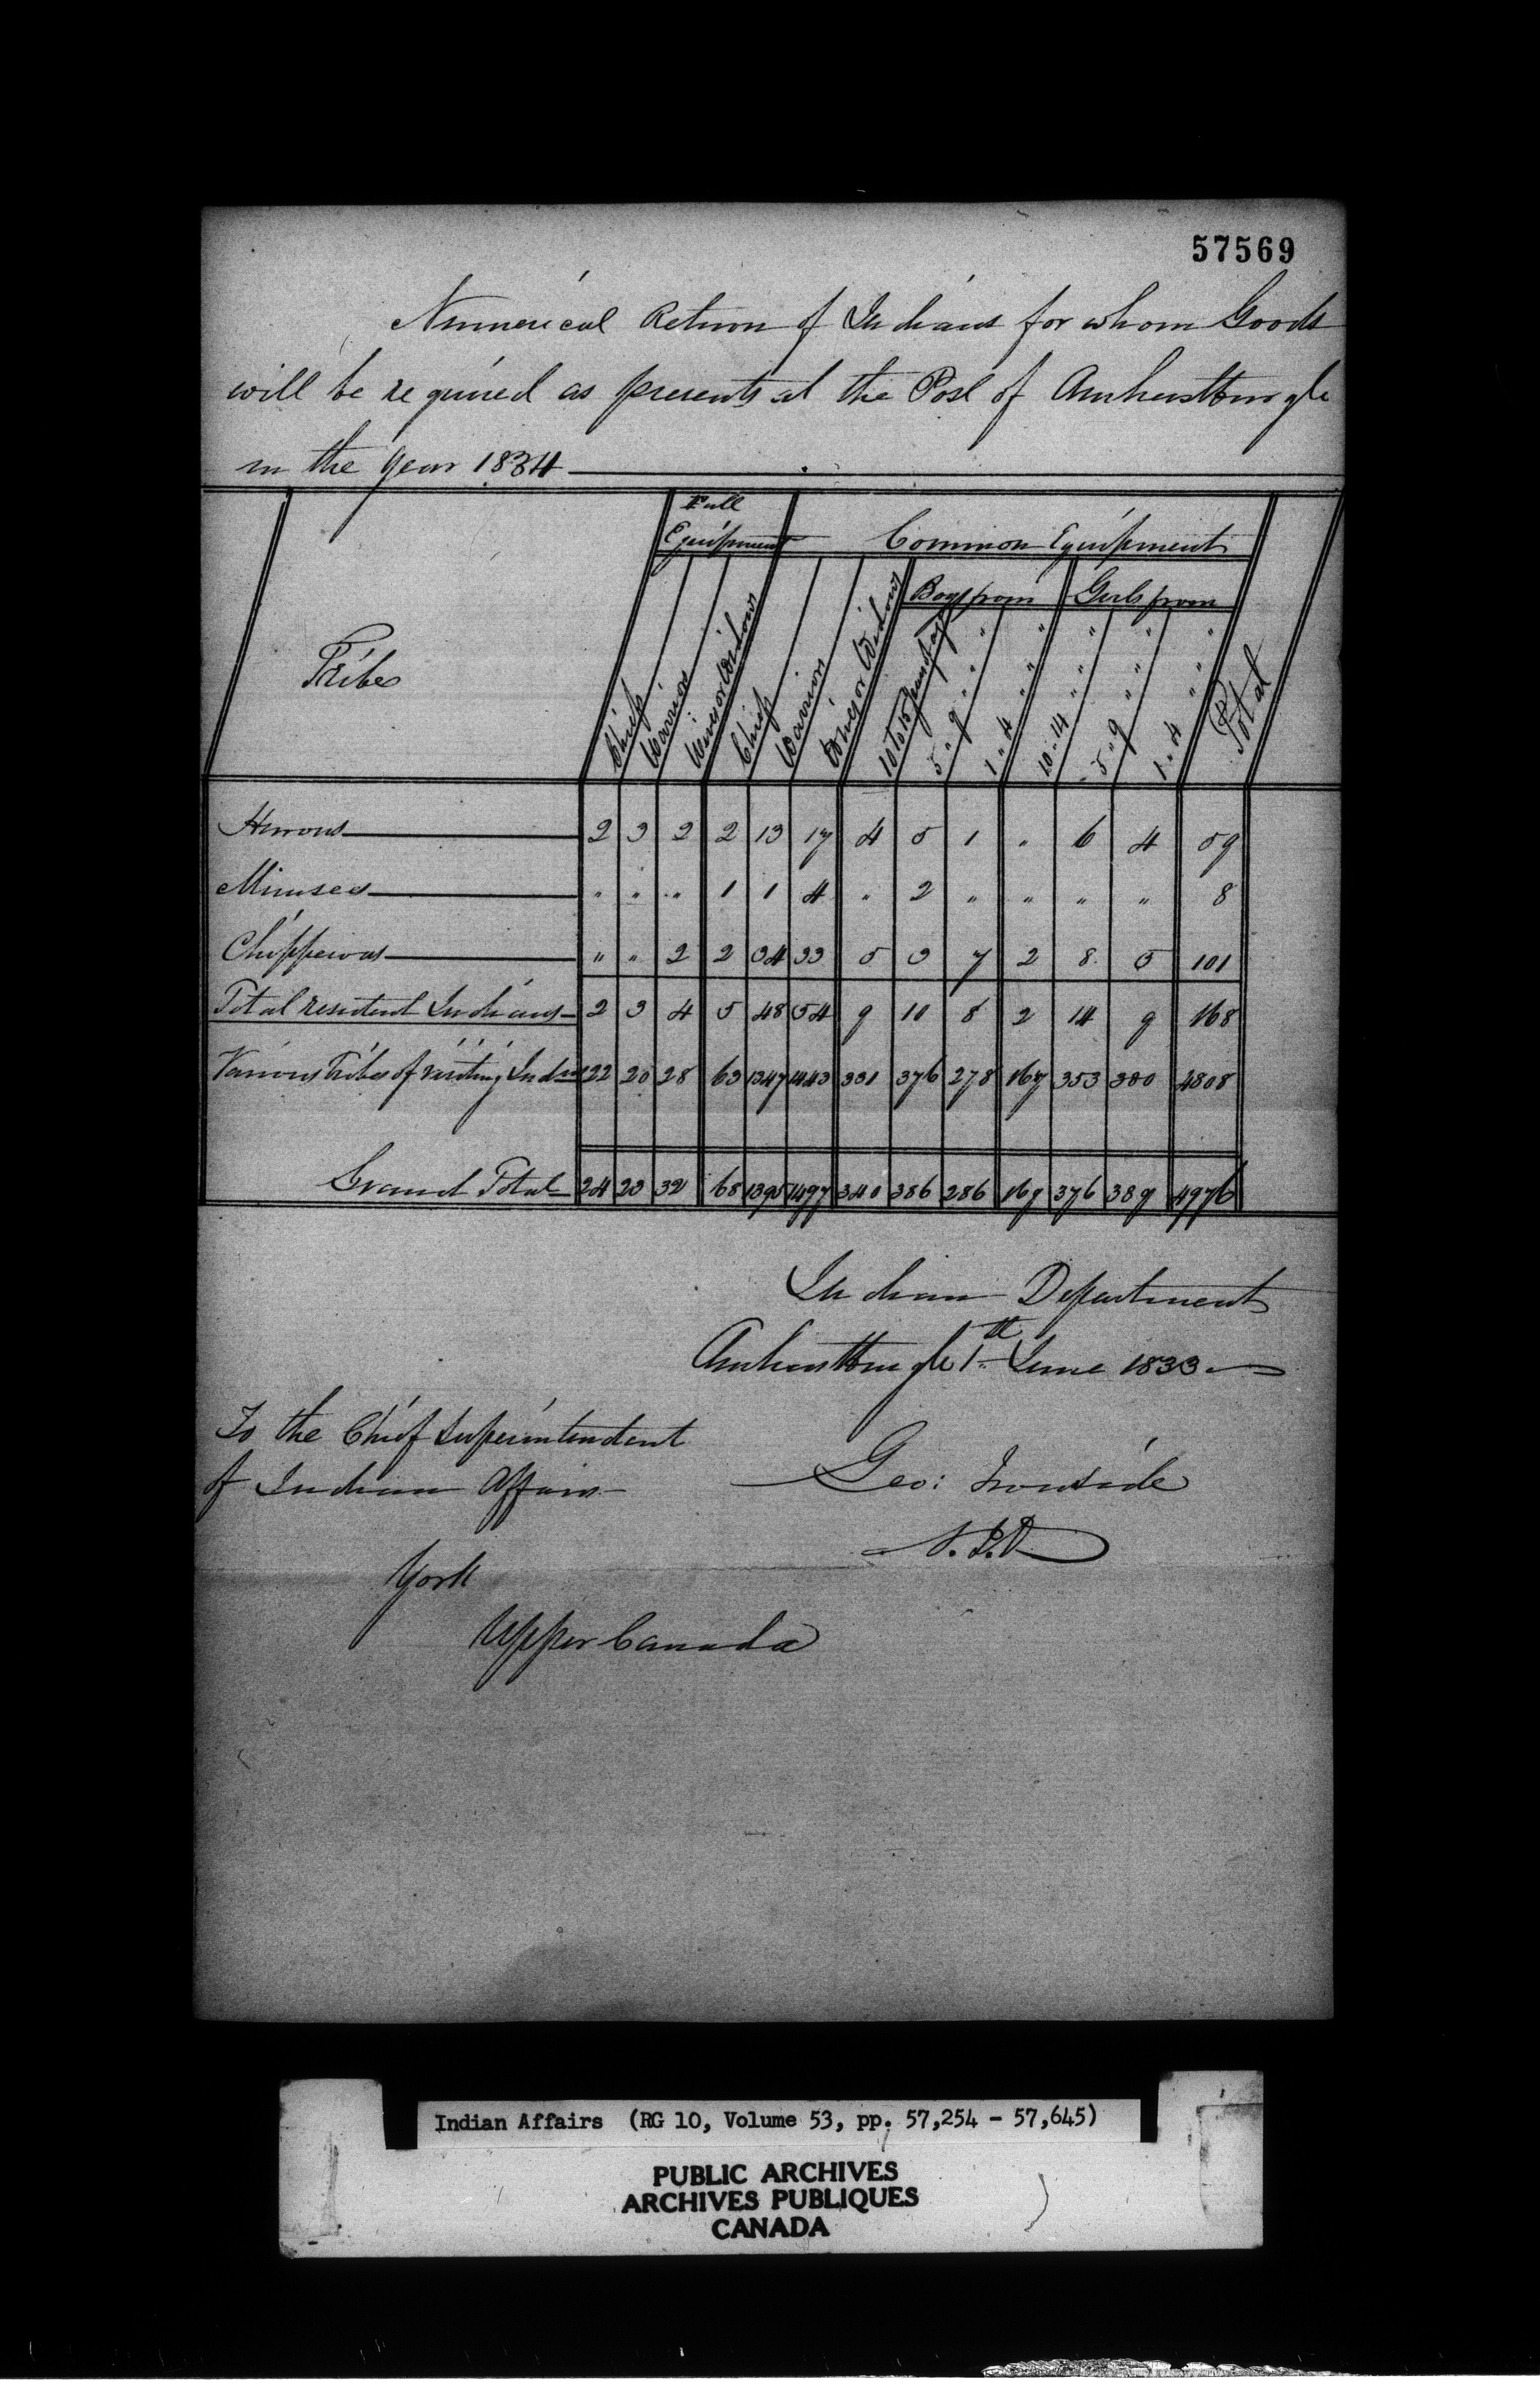 57569
Numerical Return of Indians for whom Goods
will be required as presents at the Post of Amherstburgh
in the year 1834
Tribes
Full Equipment
Common Equipment
Boys from
Girls from
Chiefs
Warriors
Wives or Widows
Chiefs
Warriors
Wives or Widows
10 to 15 years of age
5 " 9 " "
1 " 4 " "
10 " 14 " "
5 " 9 " "
1 " 4 " "
Total
Hurons 2 3 2 2 13 17 4 5 1 " 6 4 59
Munsees " " " 1 1 4 " 2 " " " " 8
Chippewas " " 2 2 34 33 5 3 7 2 8 5 101
Total resident Indians 2 3 4 5 48 54 9 10 8 2 14 9 168
Various Tribes of visiting Indns 22 20 28 63 1347 1443 331 376 278 167 353 380 4808
Grand Total 24 23 32 68 1395 1497 340 386 286 169 376 389 4976
Indian Department
Amherstburgh 1st June 1833
To the Chief Superintendent
of Indian Affairs
Geo: Ironside
S. I. A
York
Upper Canada
Indian Affairs (RG 10, Volume 53, pp. 57,254 - 57,645)
PUBLIC ARCHIVES
ARCHIVES PUBLIQUES
CANADA